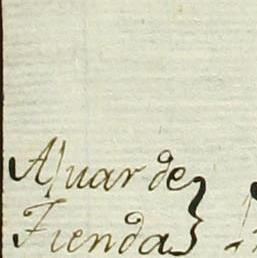 Ajuar de
Tienda